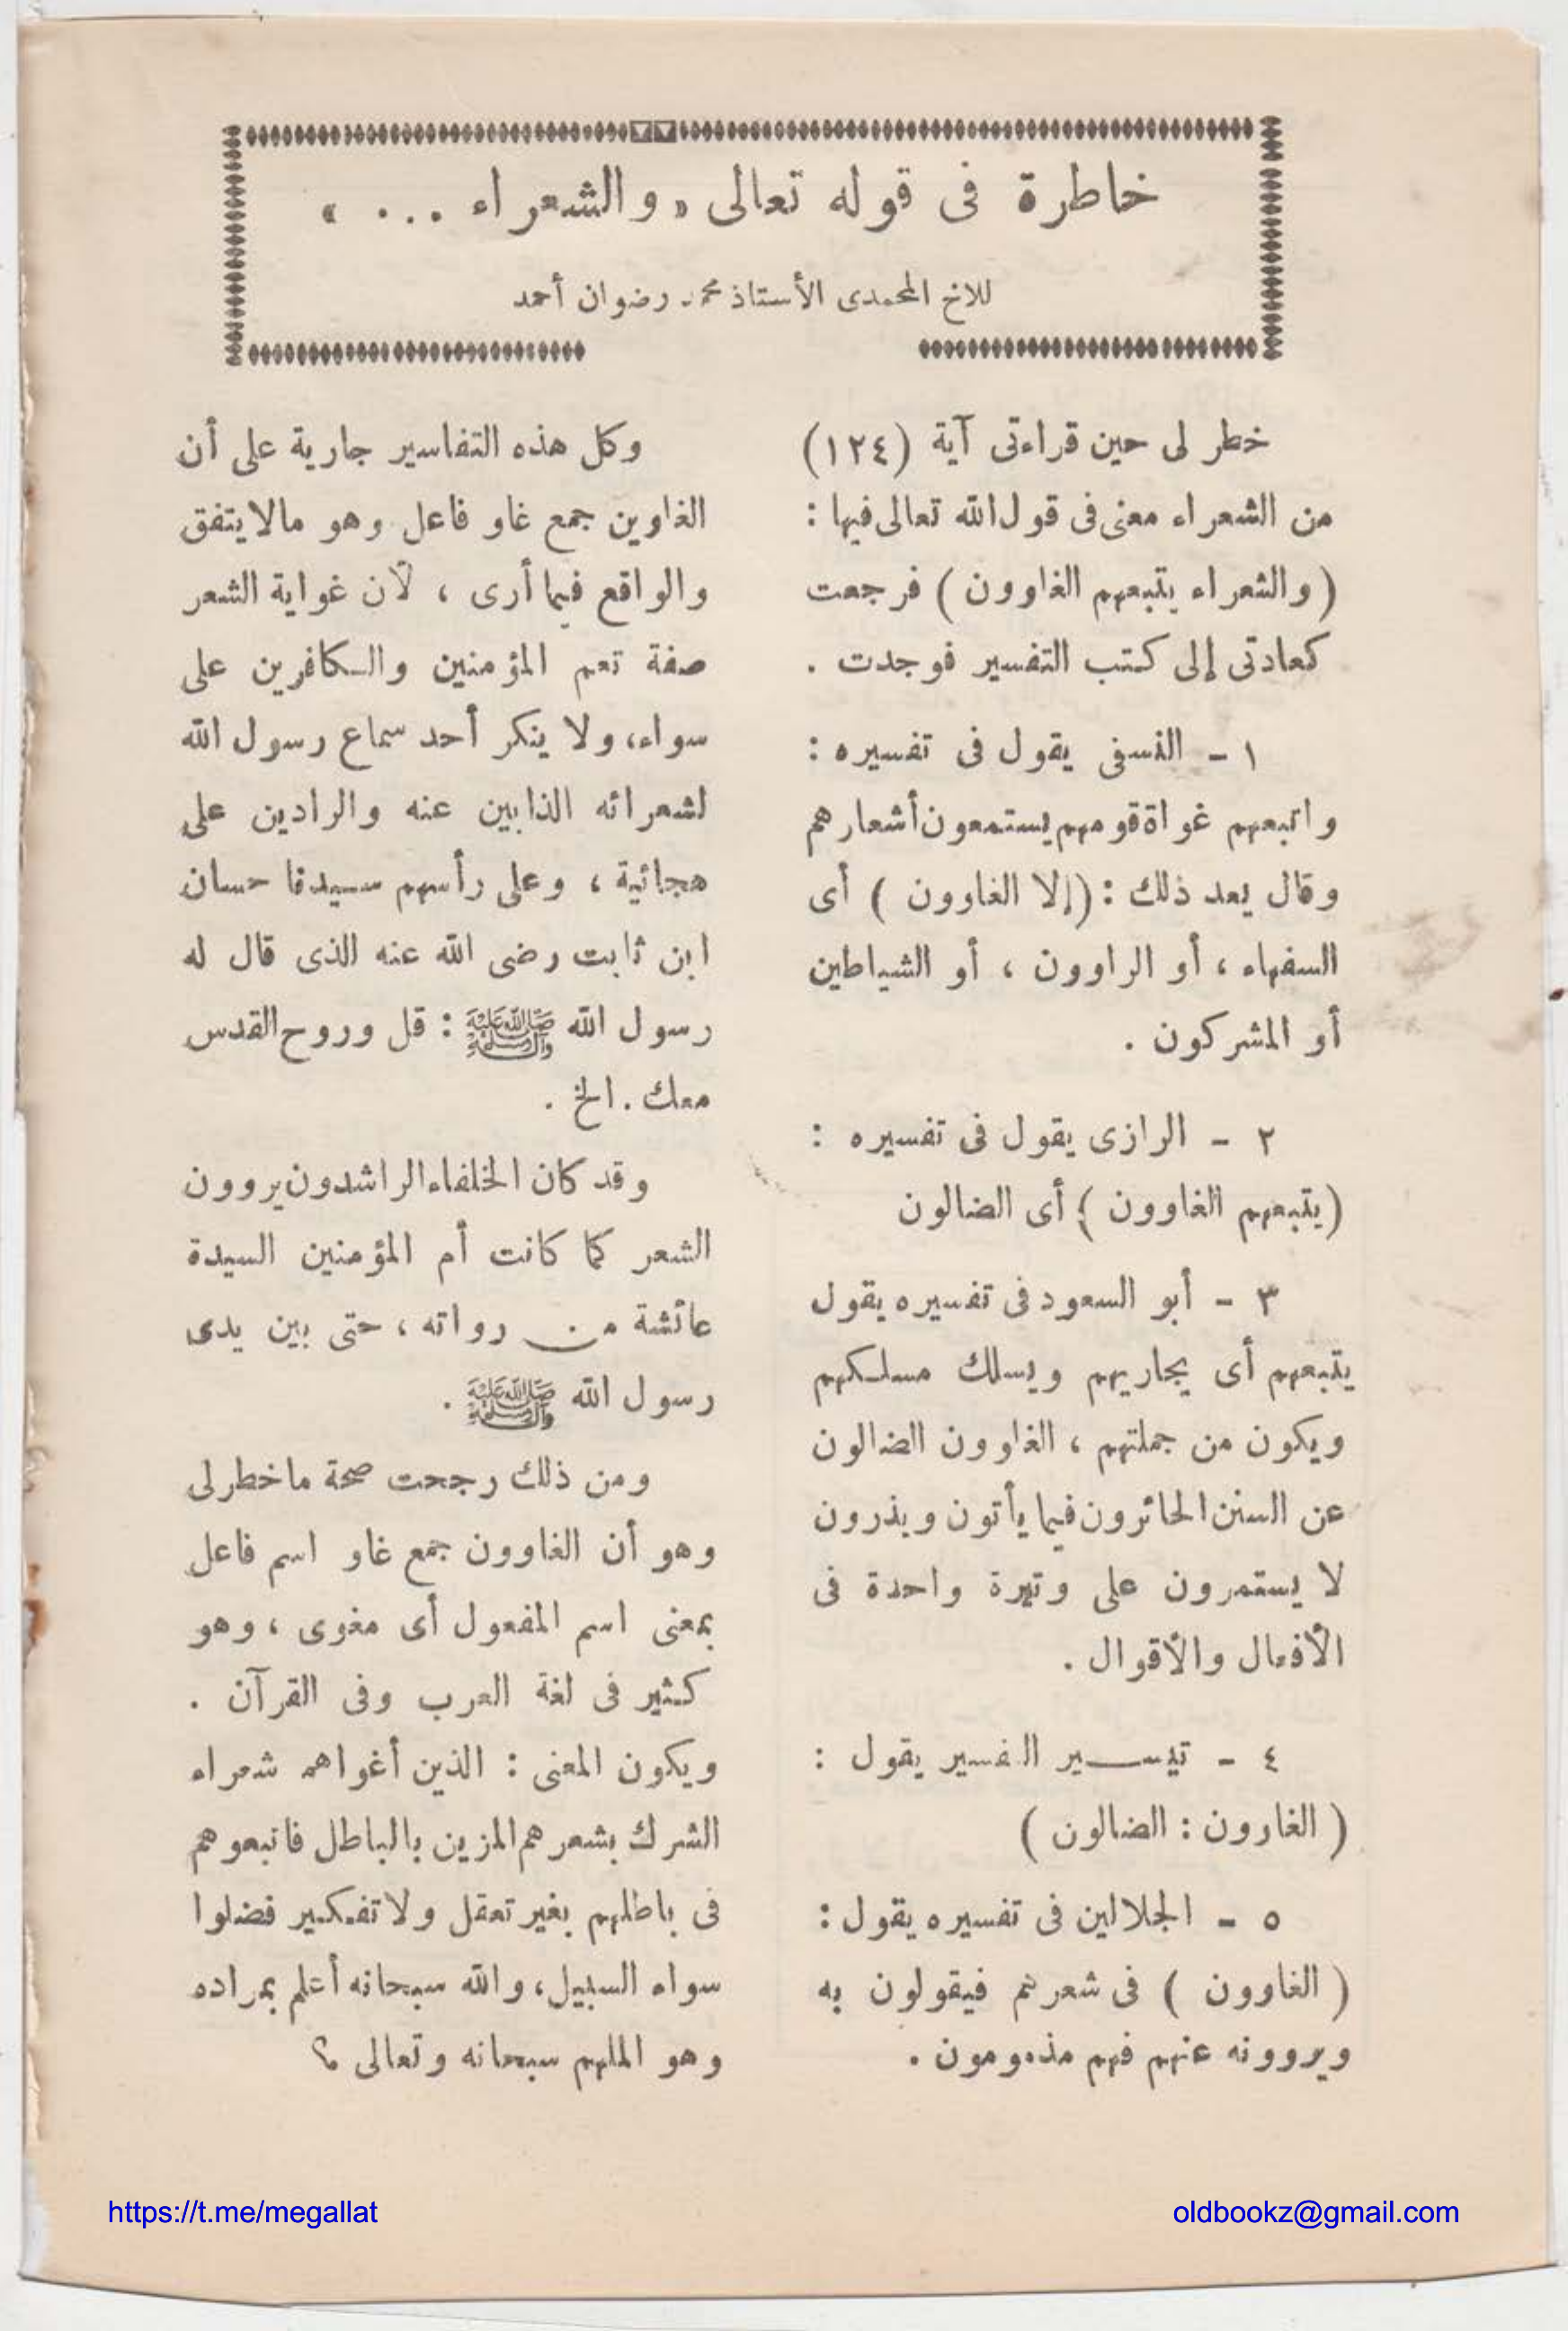 خاطرة فى قوله تعالى « والشعراء ... »
للاخ المحمدى الأستاذ محمد رضوان أحمد
خطر لى حين قراءتى آية (١٢٤)
من الشعراء معنى فى قول الله تعالى فيها :
( والشعراء يتبعهم الغاوون ) فرجعت
كعادتى إلى كتب التفسير فوجدت .
١ - النسفى يقول فى تفسيره :
واتبعهم غواة قومهم يستمعون أشعارهم
وقال بعد ذلك : ( إلا الغاوون ) أى
السفهاء ، أو الراوون ، أو الشياطين
أو المشركون .
٢ - الرازى يقول فى تفسيره :
( يتبعهم الغاوون ) أى الضالون
٣ - أبو السعود فى تفسيره يقول
يتبعهم أى يجاريهم ويسلك مسلكهم
ويكون من جملتهم ، الغاوون الضالون
عن السنن الحائرون فيما يأتون ويذرون
لا يستمرون على وتيرة واحدة فى
الأفعال والأقوال .
٤ - تيسير الفسير يقول :
( الغارون : الضالون )
٥ - الجلالين فى تفسيره يقول :
( الغاوون ) فى شعرهم فيقولون به
ويروونه عنهم فهم مذمومون .
وكل هذه التفاسير جارية على أن
الغاوين جمع غاو فاعل وهو مالا يتفق
والواقع فيما أرى ، لأن غواية الشعر
صفة تعم المؤمنين والكافرين على
سواء، ولا ينكر أحد سماع رسول الله
لشعرائه الذابين عنه والرادين على
هجائية ، وعلى رأسهم سيدنا حسان
ابن ثابت رضى الله عنه الذى قال له
رسول الله ﷺ : قل وروح القدس
معك . الخ .
وقد كان الخلفاء الراشدون يروون
الشعر كما كانت أم المؤمنين السيدة
عائشة من رواته ، حتى بين يدى
رسول الله ﷺ .
ومن ذلك رجحت صحة ما خطر لى
وهو أن الغاوون جمع غاو اسم فاعل
بمعنى اسم المفعول أى مغوى ، وهو
كثير فى لغة العرب وفى القرآن .
ويكون المعنى : الذين أغواهم شعراء
الشرك بشعرهم المزين بالباطل فاتبعوهم
فى باطلهم بغير تعقل ولا تفكير فضلوا
سواء السبيل، والله سبحانه أعلم بمراده
وهو الملهم سبحانه وتعالى ؟
https://t.me/megallat
oldbookz@gmail.com